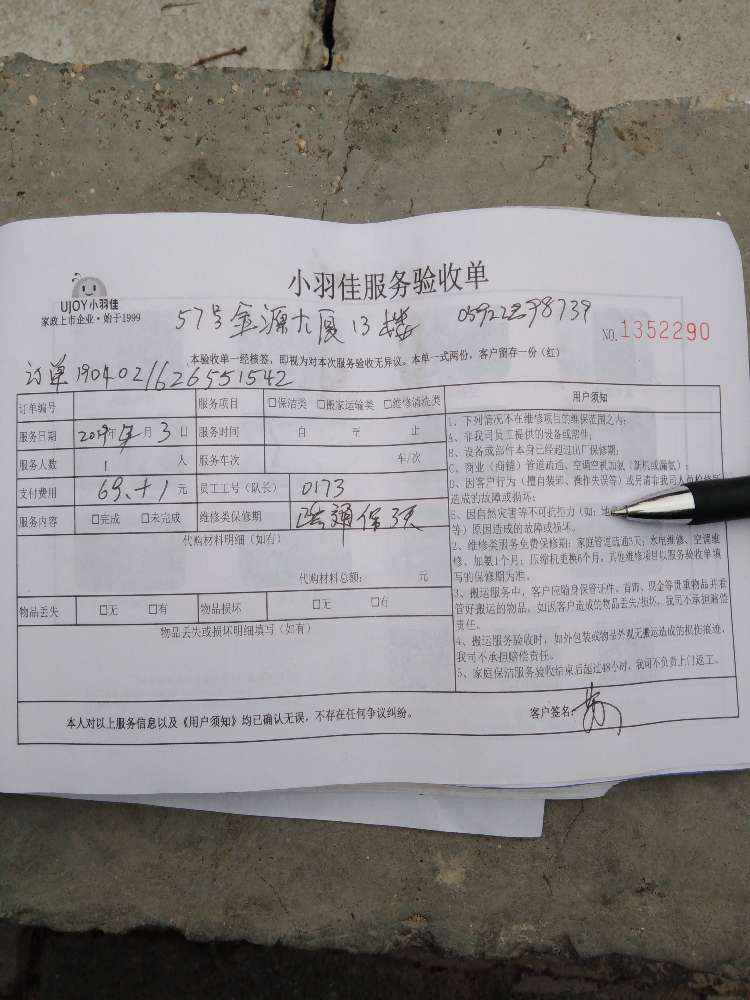 小羽佳服务验收单
UJOY小羽佳
家政上市企业·始于1999
57号金源大厦13楼
NO.1352290
本验收单一经核签，即视为对本次服务验收无异议。本单一式两份，客户留存一份（红）
订单1904021626551542
订单编号 服务项目 □保洁类 □搬家运输类 □维修清洗类
服务日期 2019年 月 3 日 服务时间 自 至 止
服务人数 1 人 服务车次 车/次
支付费用 69.+1 元 员工工号（队长） 0173
服务内容 □完成 □未完成 维修类保修期 疏通保3天
代购材料明细（如有）
代购材料总额： 元
物品丢失 □无 □有 物品损坏 □无 □有
物品丢失或损坏明细填写（如有）
用户须知
1、下列情况不在维修项目的维保范围之内：
A、非我司员工提供的设备或部件；
B、设备或部件本身已经超过出厂保修期；
C、商业（商铺）管道疏通、空调空机加氨（新机或漏氨）；
D、因客户行为（擅自装卸、操作失误等）或另请非我司人员检修所
造成的故障或损坏；
E、因自然灾害等不可抗拒力（如：地
等）原因造成的故障或损坏。
2、维修类服务免费保修期：家庭管道疏通3天；水电维修、空调维
修、加氨1个月；压缩机更换6个月，其他维修项目以服务验收单填
写的保修期为准。
3、搬运服务中，客户应随身保管证件、首饰、现金等贵重物品并看
管好搬运的物品。如因客户造成的物品丢失/损坏，我司不承担赔偿
责任。
4、搬运服务验收时，如外包装或物品外观无搬运造成的损伤痕迹，
我司不承担赔偿责任。
5、家庭保洁服务验收结束后超过48小时，我司不负责上门返工。
本人对以上服务信息以及《用户须知》均已确认无误，不存在任何争议纠纷。 客户签名：